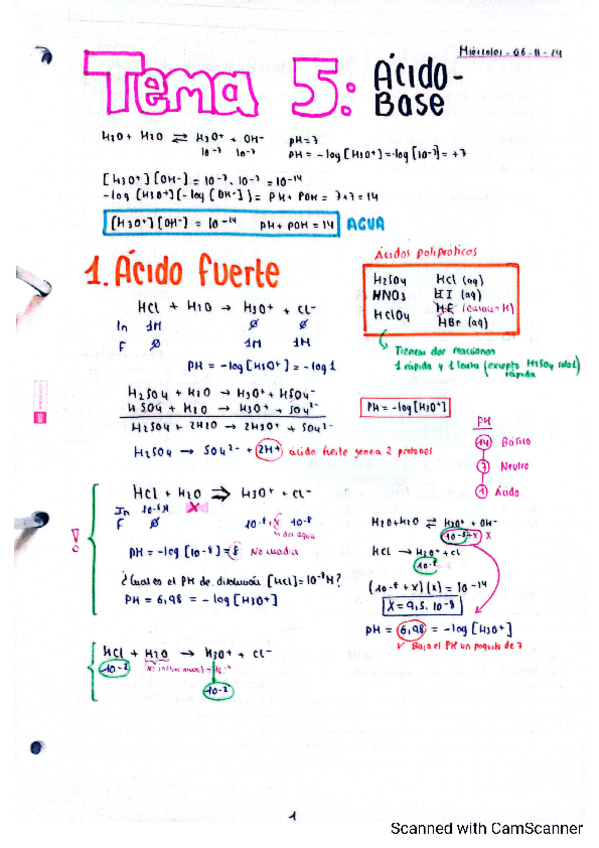 Miércoles - 06-11-24
Tema 5: Ácido-Base
H2O + H2O ⇌ H3O+ + OH- pH=7
10-7 10-7 pH = -log[H3O+] = -log[10-7] = +7
[H3O+][OH-] = 10-7 . 10-7 = 10-14
-log[H3O+][-log[OH-] = PH + POH = 7+7 = 14
[H3O+][OH-] = 10-14 PH + POH = 14 AGUA
1. Ácido fuerte
Ácidos polipróticos
H2SO4 HCl (aq)
HNO3 HI (aq)
HClO4 HF
HBr (aq)
Tienen dos reacciones
1 rápida y 1 lenta (excepto H2SO4 solo 1
rápida)
HCl + H2O → H3O+ + Cl-
In 1M ∅ ∅
F ∅ 1M 1M
PH = -log[H3O+] = -log 1
H2SO4 + H2O → H3O+ + HSO4-
HSO4 + H2O → H3O+ + SO4 2-
H2SO4 + 2H2O → 2H3O+ + SO4 2-
H2SO4 → SO4 2- + 2H+ ácido fuerte genera 2 protones
PH = -log[H3O+]
PH
14 Básico
7 Neutro
1 Ácido
!
HCl + H2O ⇒ H3O+ + Cl-
In 10-8M X
F ∅ 10-8 + X 10-8
del agua
PH = -log[10-8] = 8 No cuadra
¿Cual es el PH de disolución [HCl] = 10-8M?
PH = 6,98 = -log[H3O+]
H2O + H2O ⇌ H3O+ + OH-
10-8+X X
HCl → H3O+ + Cl
10-8
(10-8 + X)(X) = 10-14
X = 9,5 . 10-8
PH = 6,98 = -log[H3O+]
✓ Baja el PH un poquito de 7
HCl + H2O → H3O+ + Cl-
10-2
10-2
1
Scanned with CamScanner